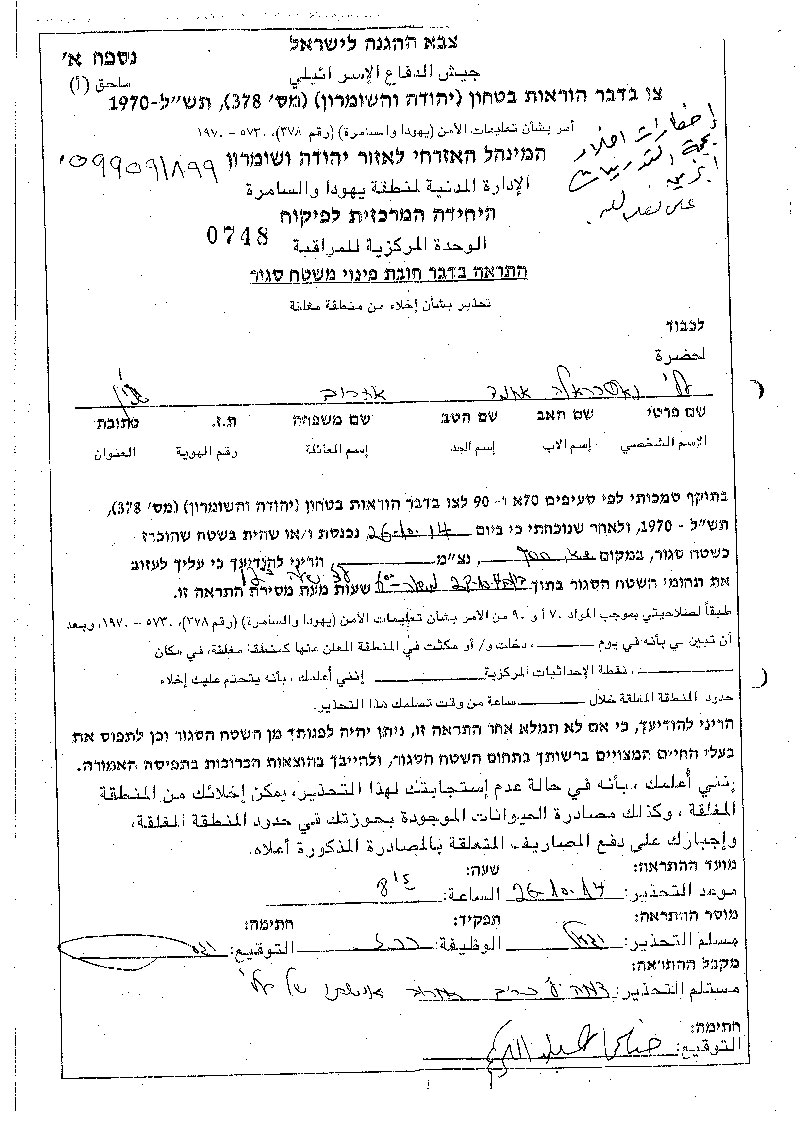 צבא ההגנה לישראל
נספח א'
جيش الدفاع الإسرائيلي
ملحق (أ)
צו בדבר הוראות בטחון (יהודה והשומרון) (מס' 378), תש"ל-1970
أمر بشأن تعليمات الأمن (يهودا والسامرة) (رقم ٣٧٨)، ٥٧٣٠ - ١٩٧٠
إخطارات اخلاء
بحجة التدريبات
המינהל האזרחי לאזור יהודה ושומרון
الإدارة المدنية لمنطقة يهودا والسامرة
היחידה המרכזית לפיקוח
0748
الوحدة المركزية للمراقبة
התראה בדבר חובת פינוי משטח סגור
تحذير بشأن إخلاء من منطقة مغلقة
לכבוד
لحضرة
עלי
שם פרטי שם האב שם הסב שם משפחה ת.ז. כתובת
الإسم الشخصي إسم الاب إسم الجد إسم العائلة رقم الهوية العنوان
בתוקף סמכותי לפי סעיפים 70א ו- 90 לצו בדבר הוראות בטחון (יהודה והשומרון) (מס' 378),
תש"ל - 1970, ולאחר שנוכחתי כי ביום 26-10-14 נכנסת ו/או שהית בשטח שהוכרז
כשטח סגור, במקום , נצ"מ , הריני להודיעך כי עליך לעזוב
את תחומי השטח הסגור בתוך שעות מעת מסירת התראה זו.
طبقاً لصلاحيتي بموجب المواد ٧٠أ و ٩٠ من الامر بشأن تعليمات الأمن (يهودا والسامرة) (رقم ٣٧٨)، ٥٧٣٠ - ١٩٧٠، وبعد
أن تبين لي بأنه في يوم ، دخلت و/ أو مكثت في المنطقة المعلن عنها كمنطقة مغلقة، في مكان
، نقطة الإحداثيات المركزية إنني أعلمك ، بأنه يتحتم عليك إخلاء
حدود المنطقة المغلقة خلال ساعة من وقت تسلمك هذا التحذير.
הריני להודיעך, כי אם לא תמלא אחר התראה זו, ניתן יהיה לפנותך מן השטח הסגור וכן לתפוס את
בעלי החיים המצויים ברשותך בתחום השטח הסגור, ולחייבך בהוצאות הכרוכות בתפיסה האמורה.
إنني أعلمك ، بأنه في حالة عدم إستجابتك لهذا التحذير، يمكن إخلائك من المنطقة
المغلقة ، وكذلك مصادرة الحيوانات الموجودة بحوزتك في حدود المنطقة المغلقة،
وإجبارك على دفع المصاريف المتعلقة بالمصادرة المذكورة أعلاه.
מועד ההתראה: שעה:
موعد التحذير: 26-10-14 الساعة:
מוסר ההתראה: תפקיד: חתימה:
مسلم التحذير: الوظيفة: التوقيع:
מקבל ההתראה:
مستلم التحذير:
חתימה:
التوقيع: